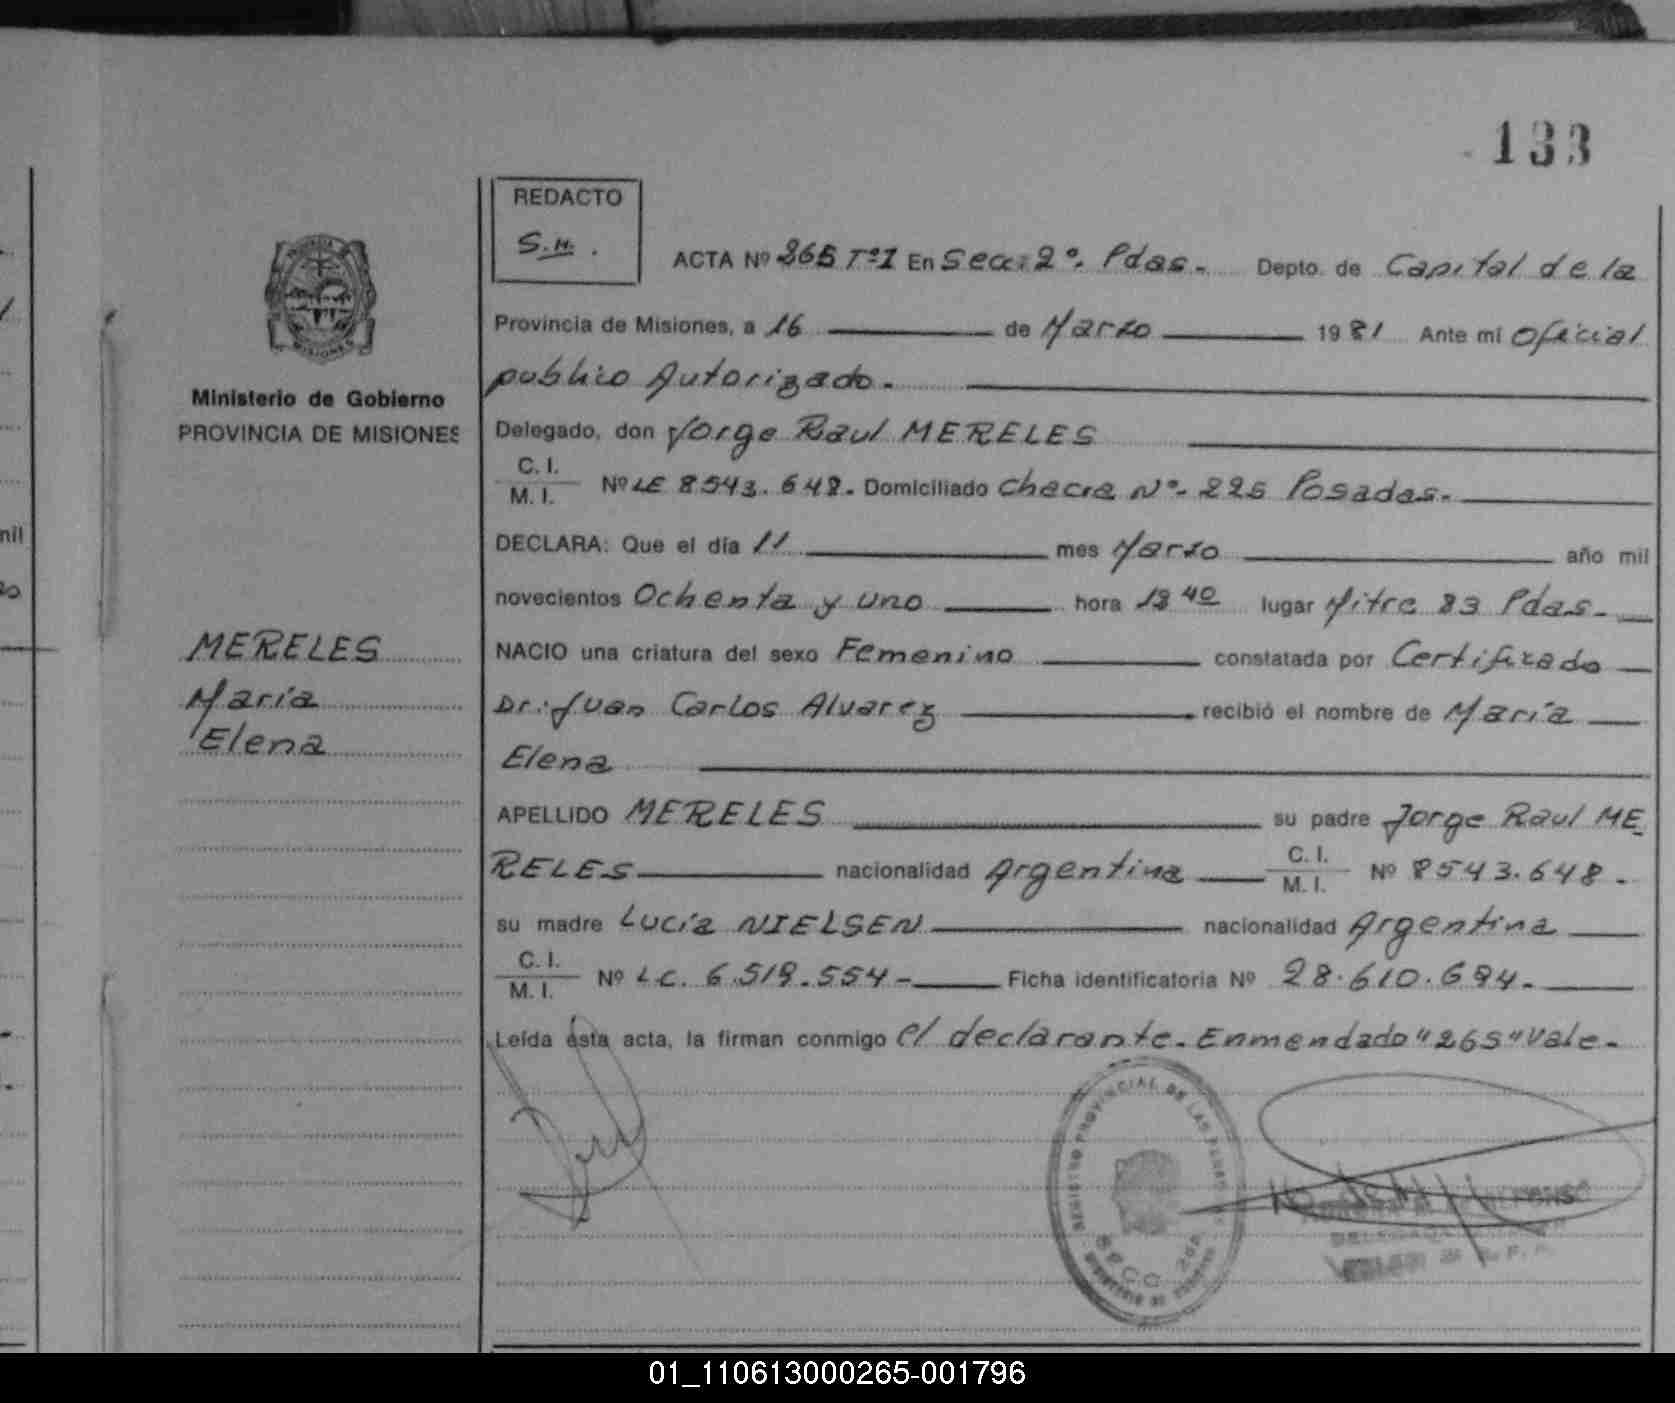 133
REDACTO
S.M.
ACTA Nº 265 Tº1 En Secc: 2º. Pdas. Depto. de Capital de la
Provincia de Misiones, a 16 de Marzo 1981 Ante mí Oficial
publico Autorizado.
Ministerio de Gobierno
PROVINCIA DE MISIONES
Delegado, don Jorge Raul MERELES
C. I.
M. I. Nº LE 8543.648. Domiciliado Chacra Nº. 225 Posadas.
DECLARA: Que el día 11 mes Marzo año mil
novecientos Ochenta y uno hora 13 40 lugar Mitre 83 Pdas.
NACIO una criatura del sexo Femenino constatada por Certificado
Dr. Juan Carlos Alvarez recibió el nombre de María
Elena
MERELES
María
Elena
APELLIDO MERELES su padre Jorge Raul ME
RELES nacionalidad Argentina C. I. M. I. Nº 8543.648.
su madre Lucía NIELSEN nacionalidad Argentina
C. I.
M. I. Nº LC. 6.519.554- Ficha identificatoria Nº 28.610.694.
Leída ésta acta, la firman conmigo el declarante. Enmendado "265" Vale.
REGISTRO PROVINCIAL DE LAS PERSONAS
SECC. 2da
MINISTERIO DE GOBIERNO
MISIONES
nil
01_110613000265-001796